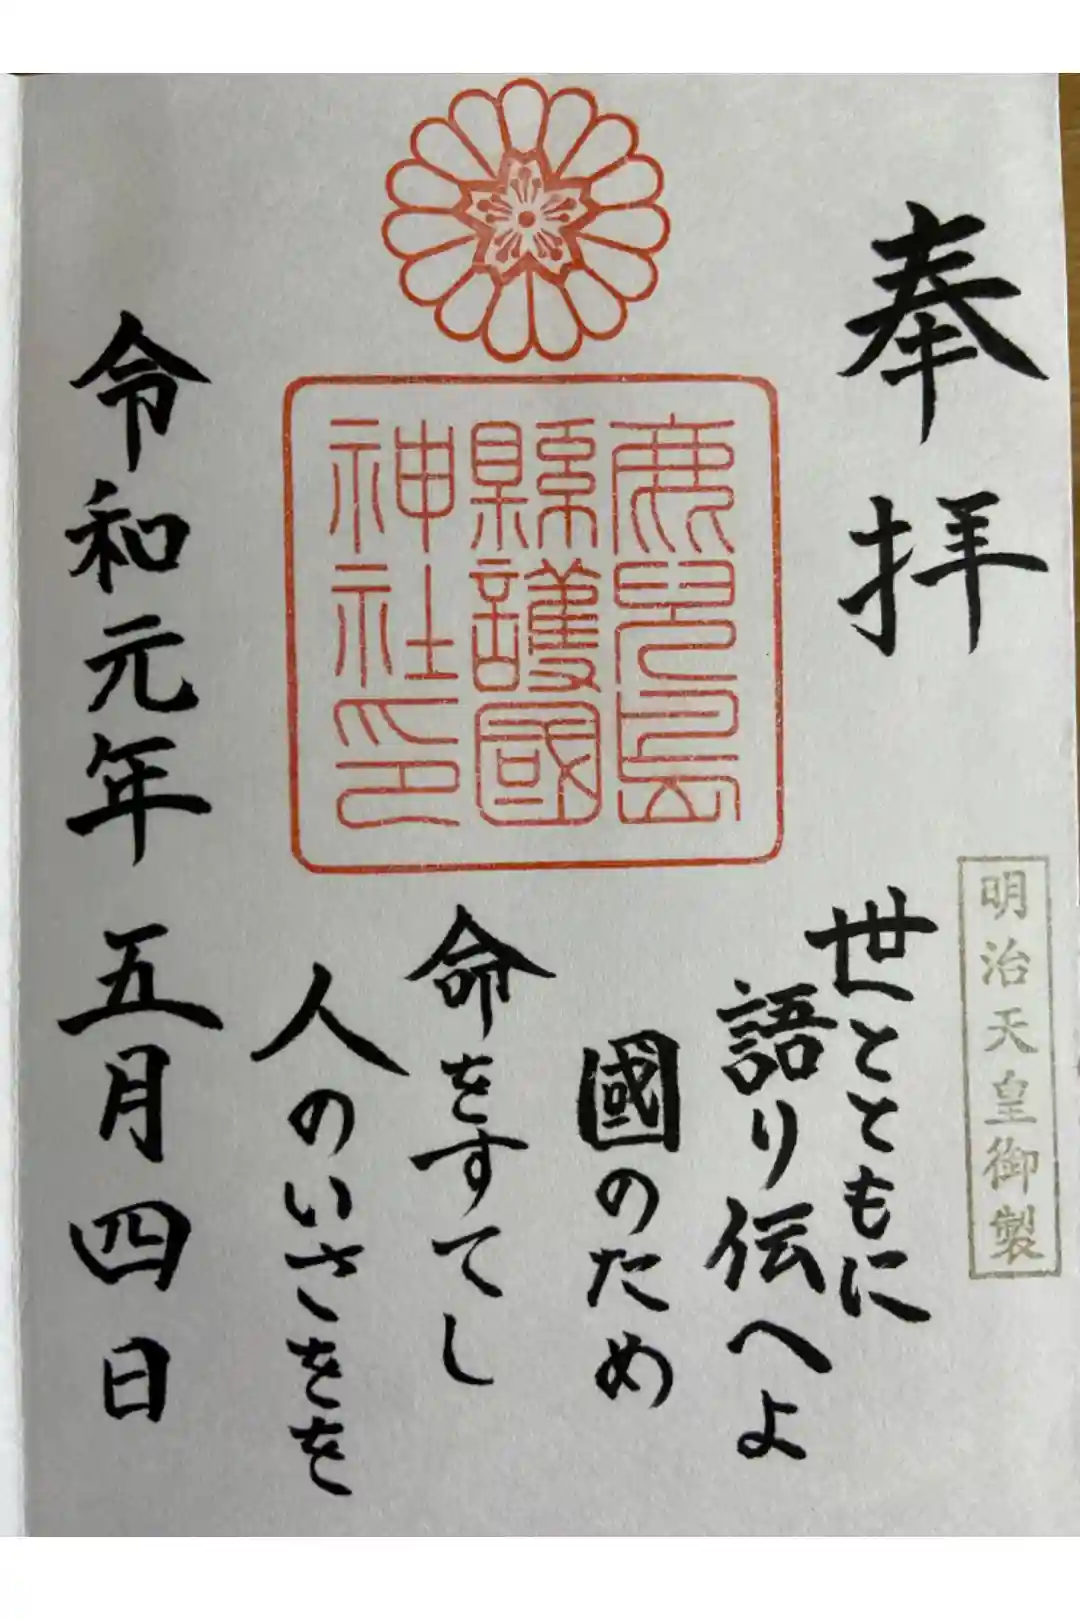 奉拝
明治天皇御製
世とともに
語り伝へよ
國のため
命をすてし
人のいさをを
鹿兒島
縣護國
神社印
令和元年五月四日